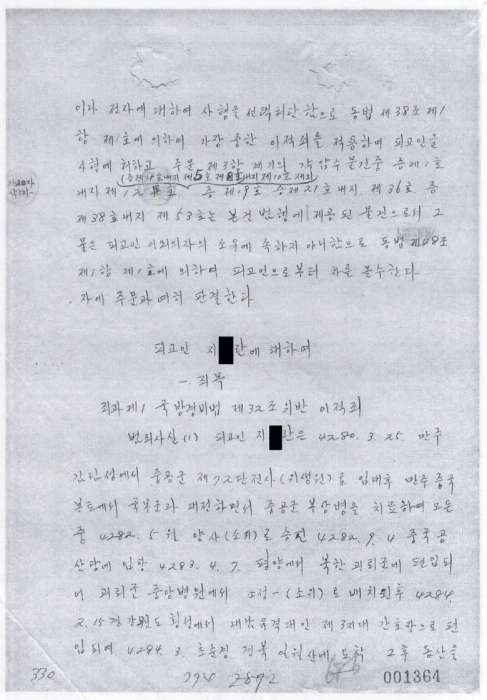 이다 전자에 대하여 사형을 선택처단 함으로 동법 제38조 제1
항 제1호에 의하여 가장 중한 이적죄를 적용하여 피고인을
사형에 처하고 주문 제3항 기의 각 압수물건중 증제1호
(증제 호내지 제5호 제8호내지 제10호 제외)
내지 제12호 증 제19호 증제21호내지 제36호 증
제38호내지 제53호는 본건 범행에 제공된 물건으로서 그
물은 피고인 이외의자의 소유에 속하지 아니함으로 동법 제48조
제1항 제1호에 의하여 피고인으로부터 차를 몰수한다
자에 주문과 여히 판결한다
피고인 지 란에 대하여
一. 죄목
죄과 제1 국방경비법 제32조위반 이적죄
범죄사실(1) 피고인 지 란은 4280.3.25 만주
간도성에서 중공군 제 단전사(위생원)로 입대후 만주 중국
본토에서 국부군과 대전하면서 중공군 부상병을 치료하여 오든
중 4282.5월 (소위)로 승진 4282.9.4 중국공
산당에 입당 4283.4.7. 평양에서 북한 괴뢰군에 편입되
어 괴뢰군 중앙병원에서 (소위)로 배치된후 4284.
2.15경 강원도 횡성에서 대남유격대인 제3지대 간호장으로 편
입되여 4284.3. 초순경 경북 일월산에 도착 그후 동산을
330
294 2892
676
001364